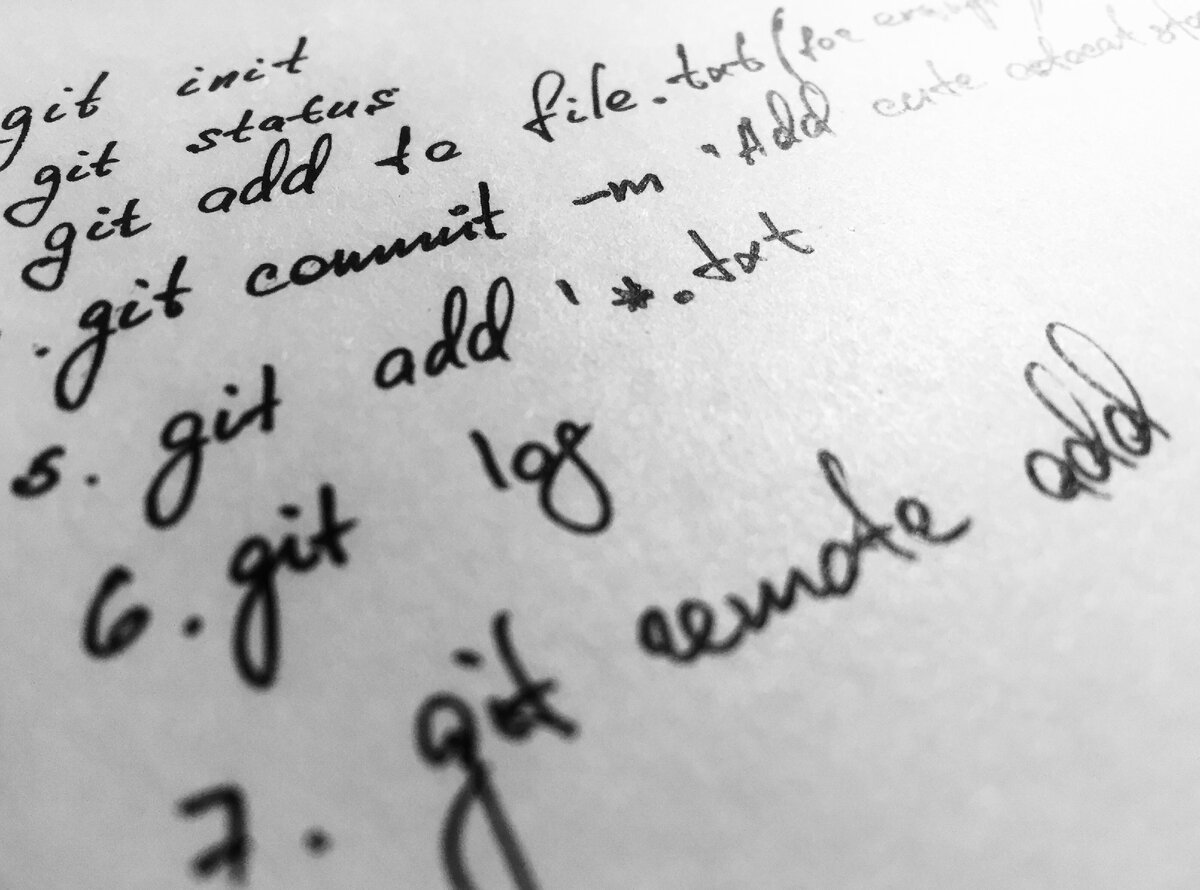 git init
git status
git add to file.txt (for
. git commit -m "Add cute octocat
5. git add '*.txt
6. git log
7. git remote add